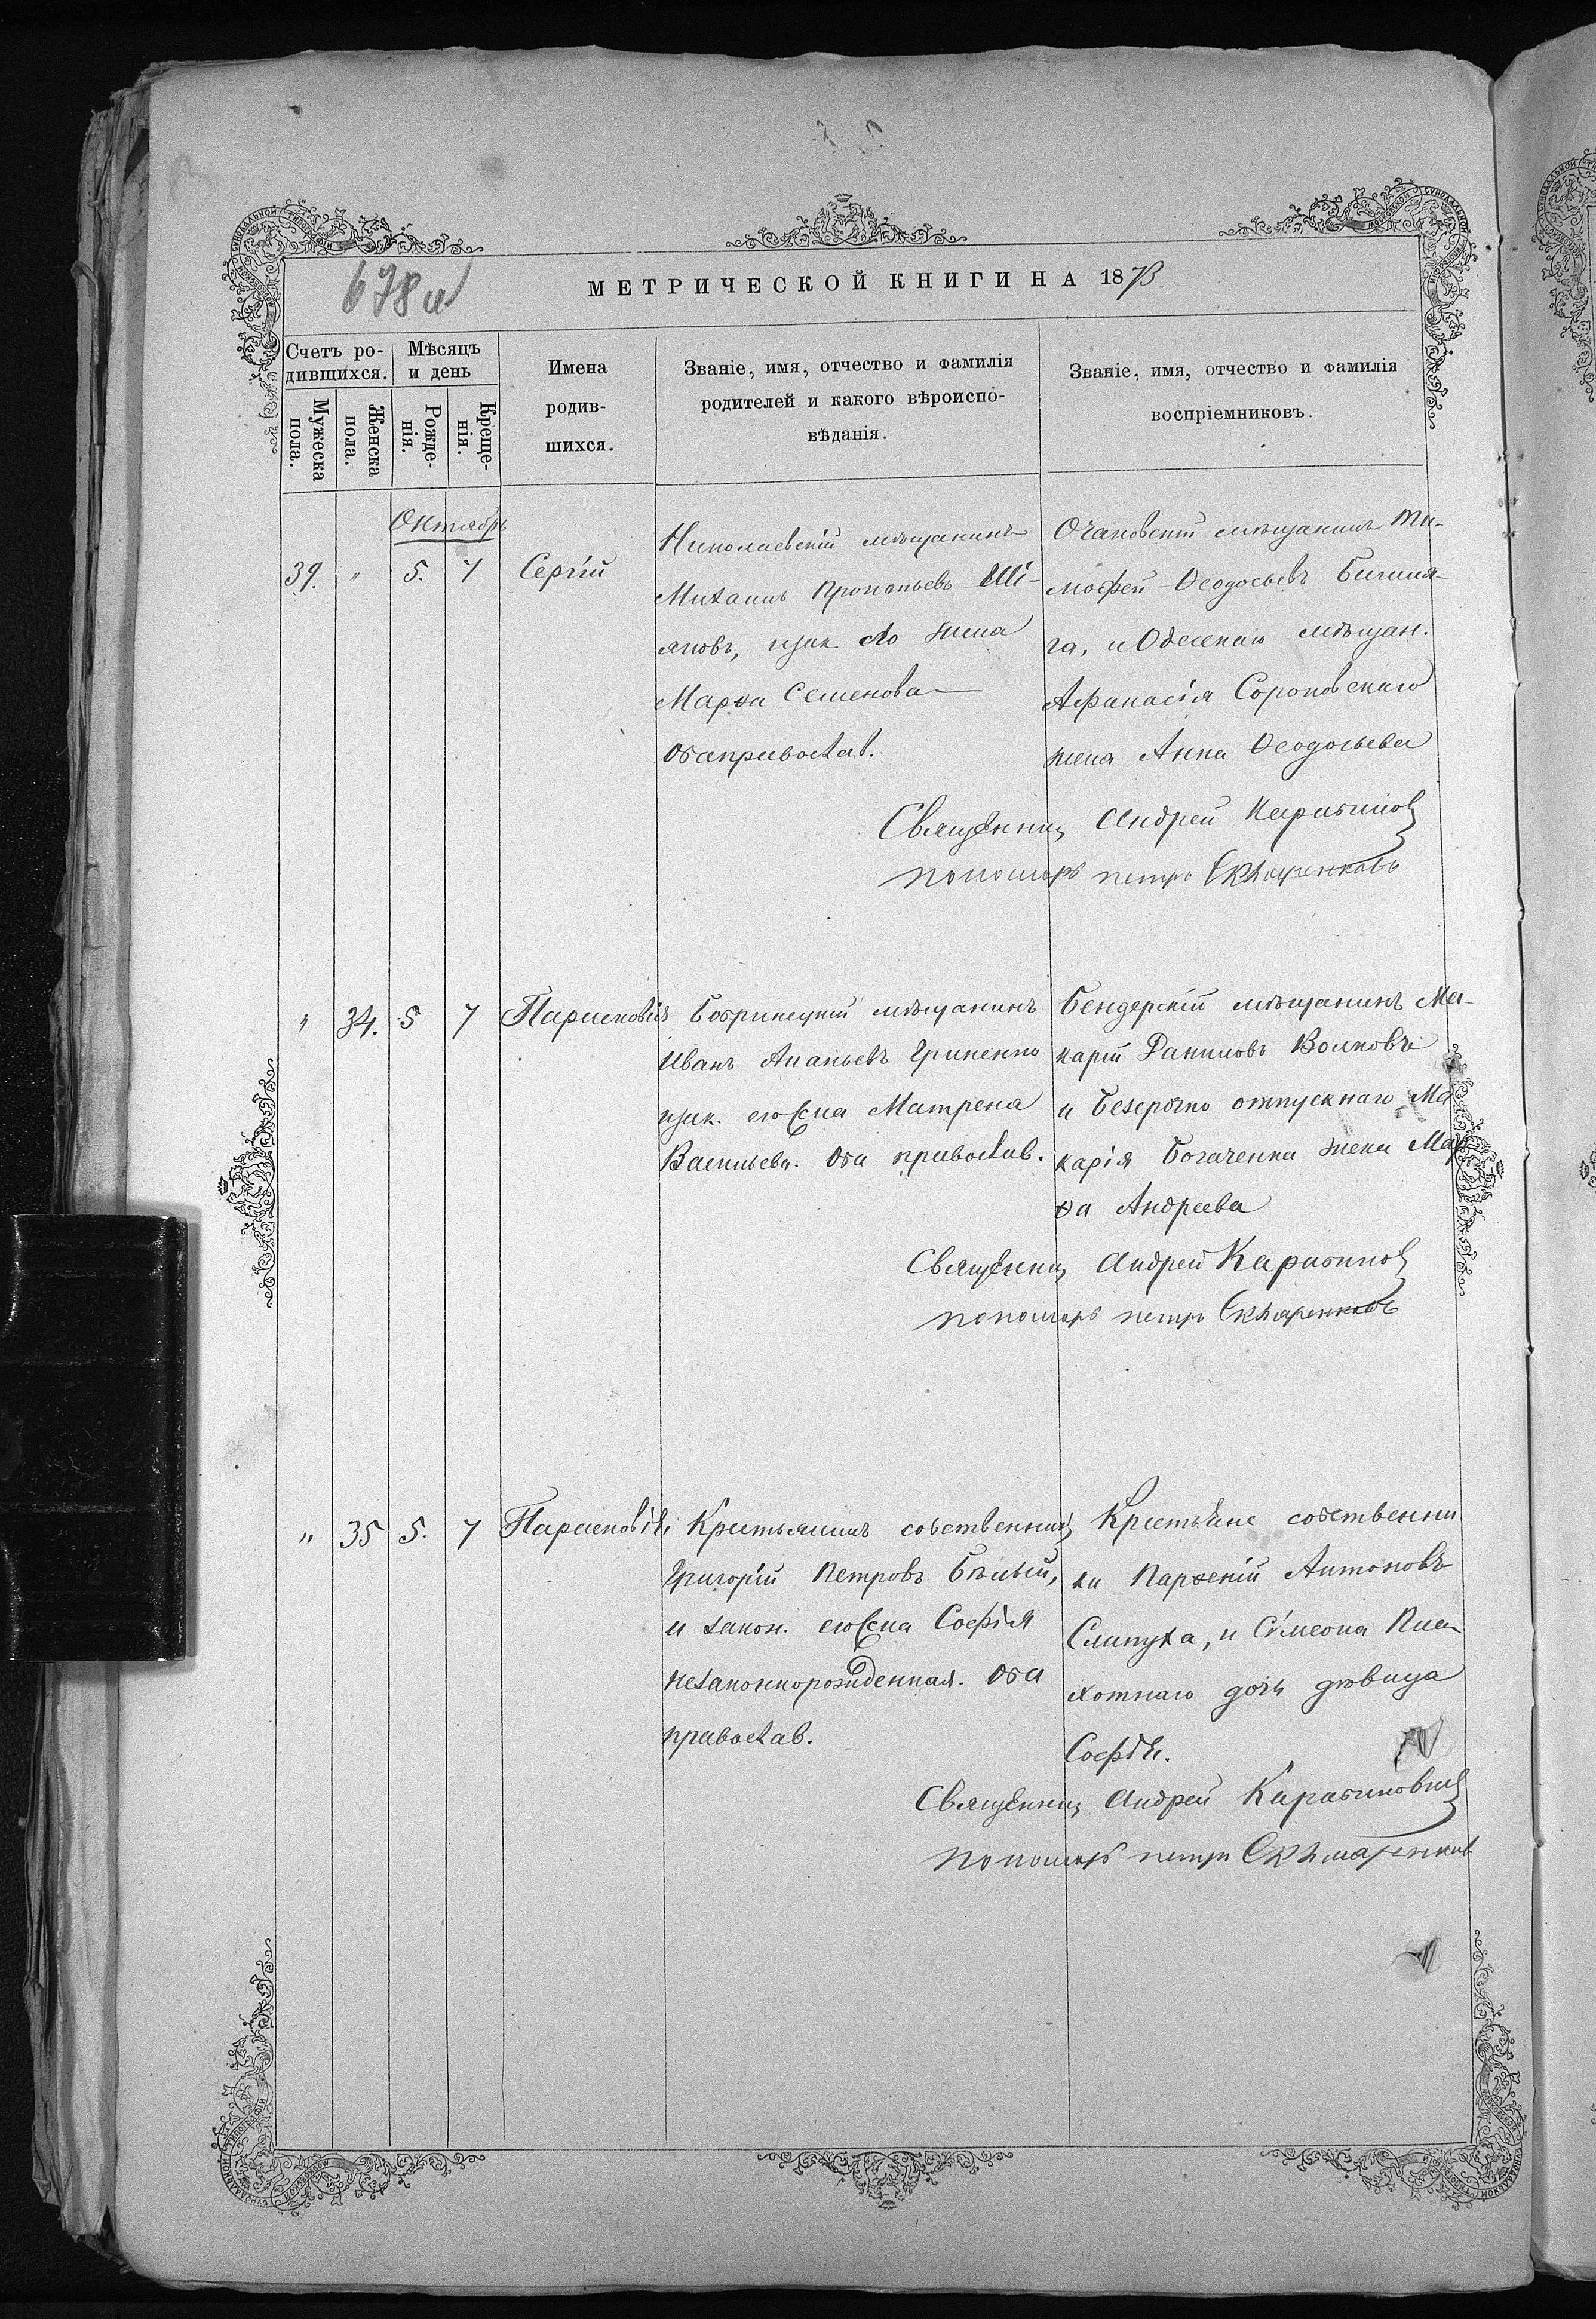 678 и
МЕТРИЧЕСКОЙ КНИГИ НА 1873
Счетъ ро-
дившихся.
Мѣсяцъ
и день
Мужеска
пола.
Женска
пола.
Рожде-
нія.
Креще-
нія.
Имена
родив-
шихся.
Званіе, имя, отчество и фамилія
родителей и какого вѣроиспо-
вѣданія.
Званіе, имя, отчество и фамилія
воспріемниковъ.
Октябрь
39. " 5. 7 Сергій
Николаевскій мѣщанинъ
Михаилъ Прокопьевъ Ші-
яновъ, изак. его жена
Марѳа Семенова
оба православ.
Очаковскій мѣщанинъ Ти-
мофей Ѳеодосьевъ
га, и Одескаго мѣщан.
Афанасія Сороковскаго
жена Анна Ѳеодосьева
Священниц Андрей
пономарь петръ
" 34. 5 7 Параскевія
Бобринецкій мѣщанинъ
Иванъ Ананьевъ Гриненко
изак. его жена Матрена
Васильева. Оба православ.
Бендерскій мѣщанинъ Ма-
карій Даниловъ Волковъ
и безсрочно отпускнаго Ма
карія Богаченка жена Мар
ѳа Андреева
Священниц Андрей
пономарь петръ
" 35 5. 7 Параскевія
Крестьянинъ собственникъ
Григорій Петровъ Бѣлый,
и закон. его жена Софія
незаконнорожденная. Оба
православ.
Крестьяне собственни
ки Парѳеній Антоновъ
Слипуха, и Сѵмеона
хотнаго дочь дѣвица
Софія.
Священниц Андрей
пономарь петръ